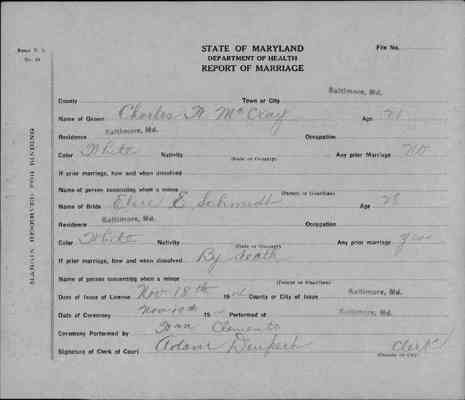 STATE OF MARYLAND
DEPARTMENT OF HEALTH
REPORT OF MARRIAGE
File No.
MARGIN RESERVED FOR BINDING
County Town or City Baltimore, Md.
Name of Groom Charles A McCray Age 21
Residence Baltimore, Md. Occupation
Color White Nativity (State or Country) Any prior Marriage no
If prior marriage, how and when dissolved
Name of person consenting when a minor (Parent or Guardian)
Name of Bride Elsie E Schmidt Age 28
Residence Baltimore, Md. Occupation
Color White Nativity (State or Country) Any prior marriage yes
If prior marriage, how and when dissolved By death
Name of person consenting when a minor (Parent or Guardian)
Date of Issue of License Nov 18th 19 County or City of Issue Baltimore, Md.
Date of Ceremony Nov 19 Performed at Baltimore, Md.
Ceremony Performed by Clements
Signature of Clerk of Court Adam Deupert Clerk
(County or City)